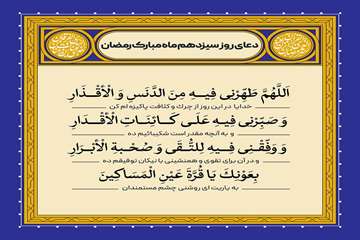 دعای روز سیزدهم ماه مبارک رمضان
اَللَّهُمَّ طَهِّرْنِی فِیهِ مِنَ الدَّنَسِ وَ الْأَقْذَارِ
خدایا در این روز از چرک و کثافت پاکیزه ام کن
وَ صَبِّرْنِی فِیهِ عَلَی کَائِنَاتِ الْأَقْدَارِ
و به آنچه مقدر است شکیبائیم ده
وَ وَفِّقْنِی فِیهِ لِلتُّقَی وَ صُحْبَةِ الْأَبْرَارِ
و در آن برای تقوی و همنشینی با نیکان توفیقم ده
بِعَوْنِكَ یَا قُرَّةَ عَیْنِ الْمَسَاکِینَ
به یاریت ای روشنی چشم مستمندان